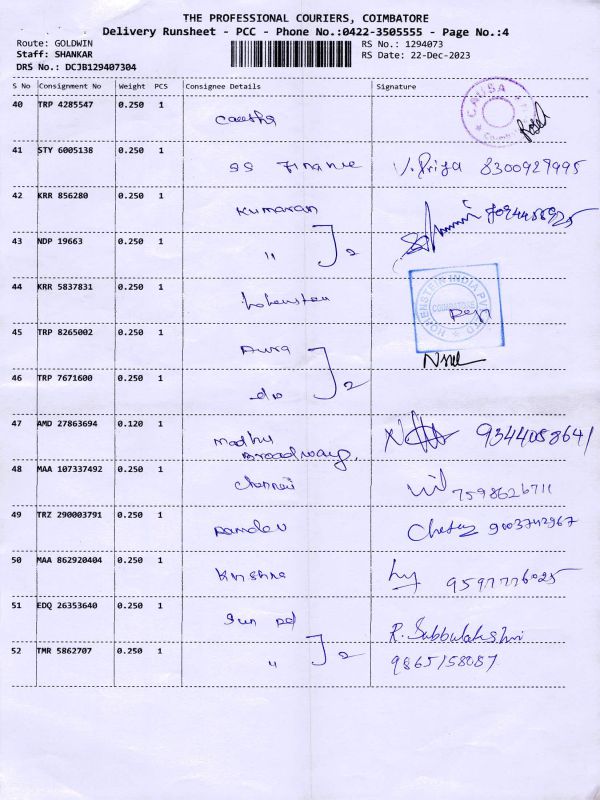 THE PROFESSIONAL COURIERS, COIMBATORE
Delivery Runsheet - PCC - Phone No.:0422-3505555 - Page No.:4
Route: GOLDWIN
Staff: SHANKAR
DRS No.: DCJB129407304
RS No.: 1294073
RS Date: 22-Dec-2023
S No Consignment No Weight PCS Consignee Details Signature
40 TRP 4285547 0.250 1
41 STY 6005138 0.250 1 SS Finance V. Priya 8300929995
42 KRR 856280 0.250 1 Kumaran
43 NDP 19663 0.250 1 " 2
44 KRR 5837831 0.250 1
HOHENSTEIN INDIA PVT LTD
COIMBATORE
45 TRP 8265002 0.250 1
46 TRP 7671600 0.250 1 do 2
47 AMD 27863694 0.120 1 Madhu 9344058641
Broadway,
48 MAA 107337492 0.250 1 Chennai 7598626711
49 TRZ 290003791 0.250 1 Ramdev Chetan 9003742967
50 MAA 862920404 0.250 1 Krishna 9597776025
51 EDQ 26353640 0.250 1 Sun R. Subbulakshmi
52 TMR 5862707 0.250 1 " 2 9865158087